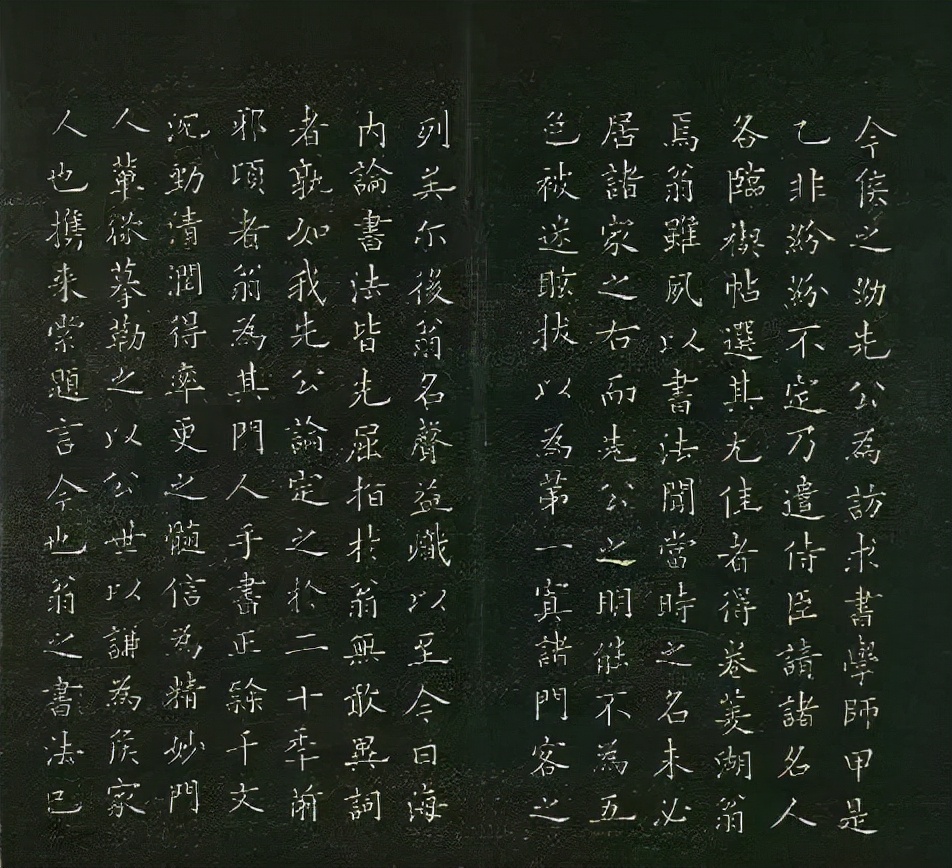 今侯之幼先公為訪求書學師甲是
乙非紛紛不定乃遣侍臣請諸名人
各臨禊帖選其尤佳者得卷菱湖翁
焉翁雖夙以書法聞當時之名未必
居諸家之右而先公之明能不為五
色被迷眩拔以為第一寘諸門客之
列美尔後翁名聲益熾以至今日海
内論書法皆先屈指於翁無敢異詞
者孰如我先公論定之於二十季前
邪頃者翁為其門人手書正餘千文
沉勁清潤得率更之髓信為精妙門
人輩欲摹勒之以公世以謙為侯家
人也攜来索題言今也翁之書法已